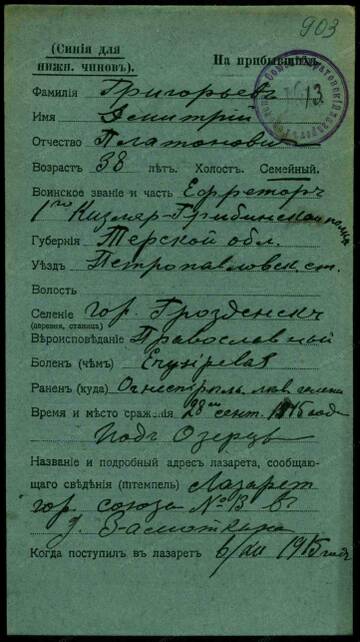 903
(Синія для
нижн. чиновъ).
На прибывшихъ
13
Фамилія Григорьевъ
Имя Дмитрій
Отчество Платоновичъ
Возрастъ 38 лѣтъ. Холост. Семейный.
Воинское званіе и часть Ефрейторъ
1го Кизляр-Гребинской полка
Губернія Терской обл.
Уѣздъ Петропавловск. ст.
Волость
Селеніе гор. Грозденскъ
(деревня, станица)
Вѣроисповѣданіе Православный
Боленъ (чѣмъ) Erysipelas
Раненъ (куда) Огнестрѣльн. лѣв.
Время и мѣсто сраженія 28го сент. 1915 года
подъ Озерцы
Названіе и подробный адресъ лазарета, сообщаю-
щаго свѣдѣнія (штемпель) Лазарет
гор. союза №13 въ
д. Замоткина
Когда поступилъ въ лазаретъ 6/XII 1915 года